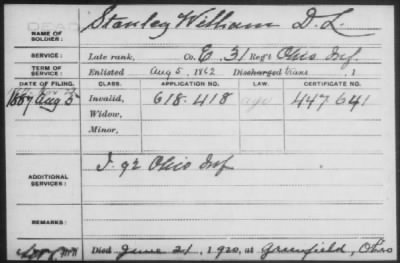 DEAD
NAME OF SOLDIER: Stanley William D. L.
SERVICE: Late rank, Co. E. 31 Reg't Ohio Inf.
TERM OF SERVICE: Enlisted Aug 5, 1862 Discharged 1
DATE OF FILING. CLASS. APPLICATION NO. LAW. CERTIFICATE NO.
1887 Aug 5 Invalid, 618.418 447.641
Widow,
Minor,
ADDITIONAL SERVICES: I. 92 Ohio Inf
REMARKS:
Died June 21, 1920, at Greenfield, Ohio